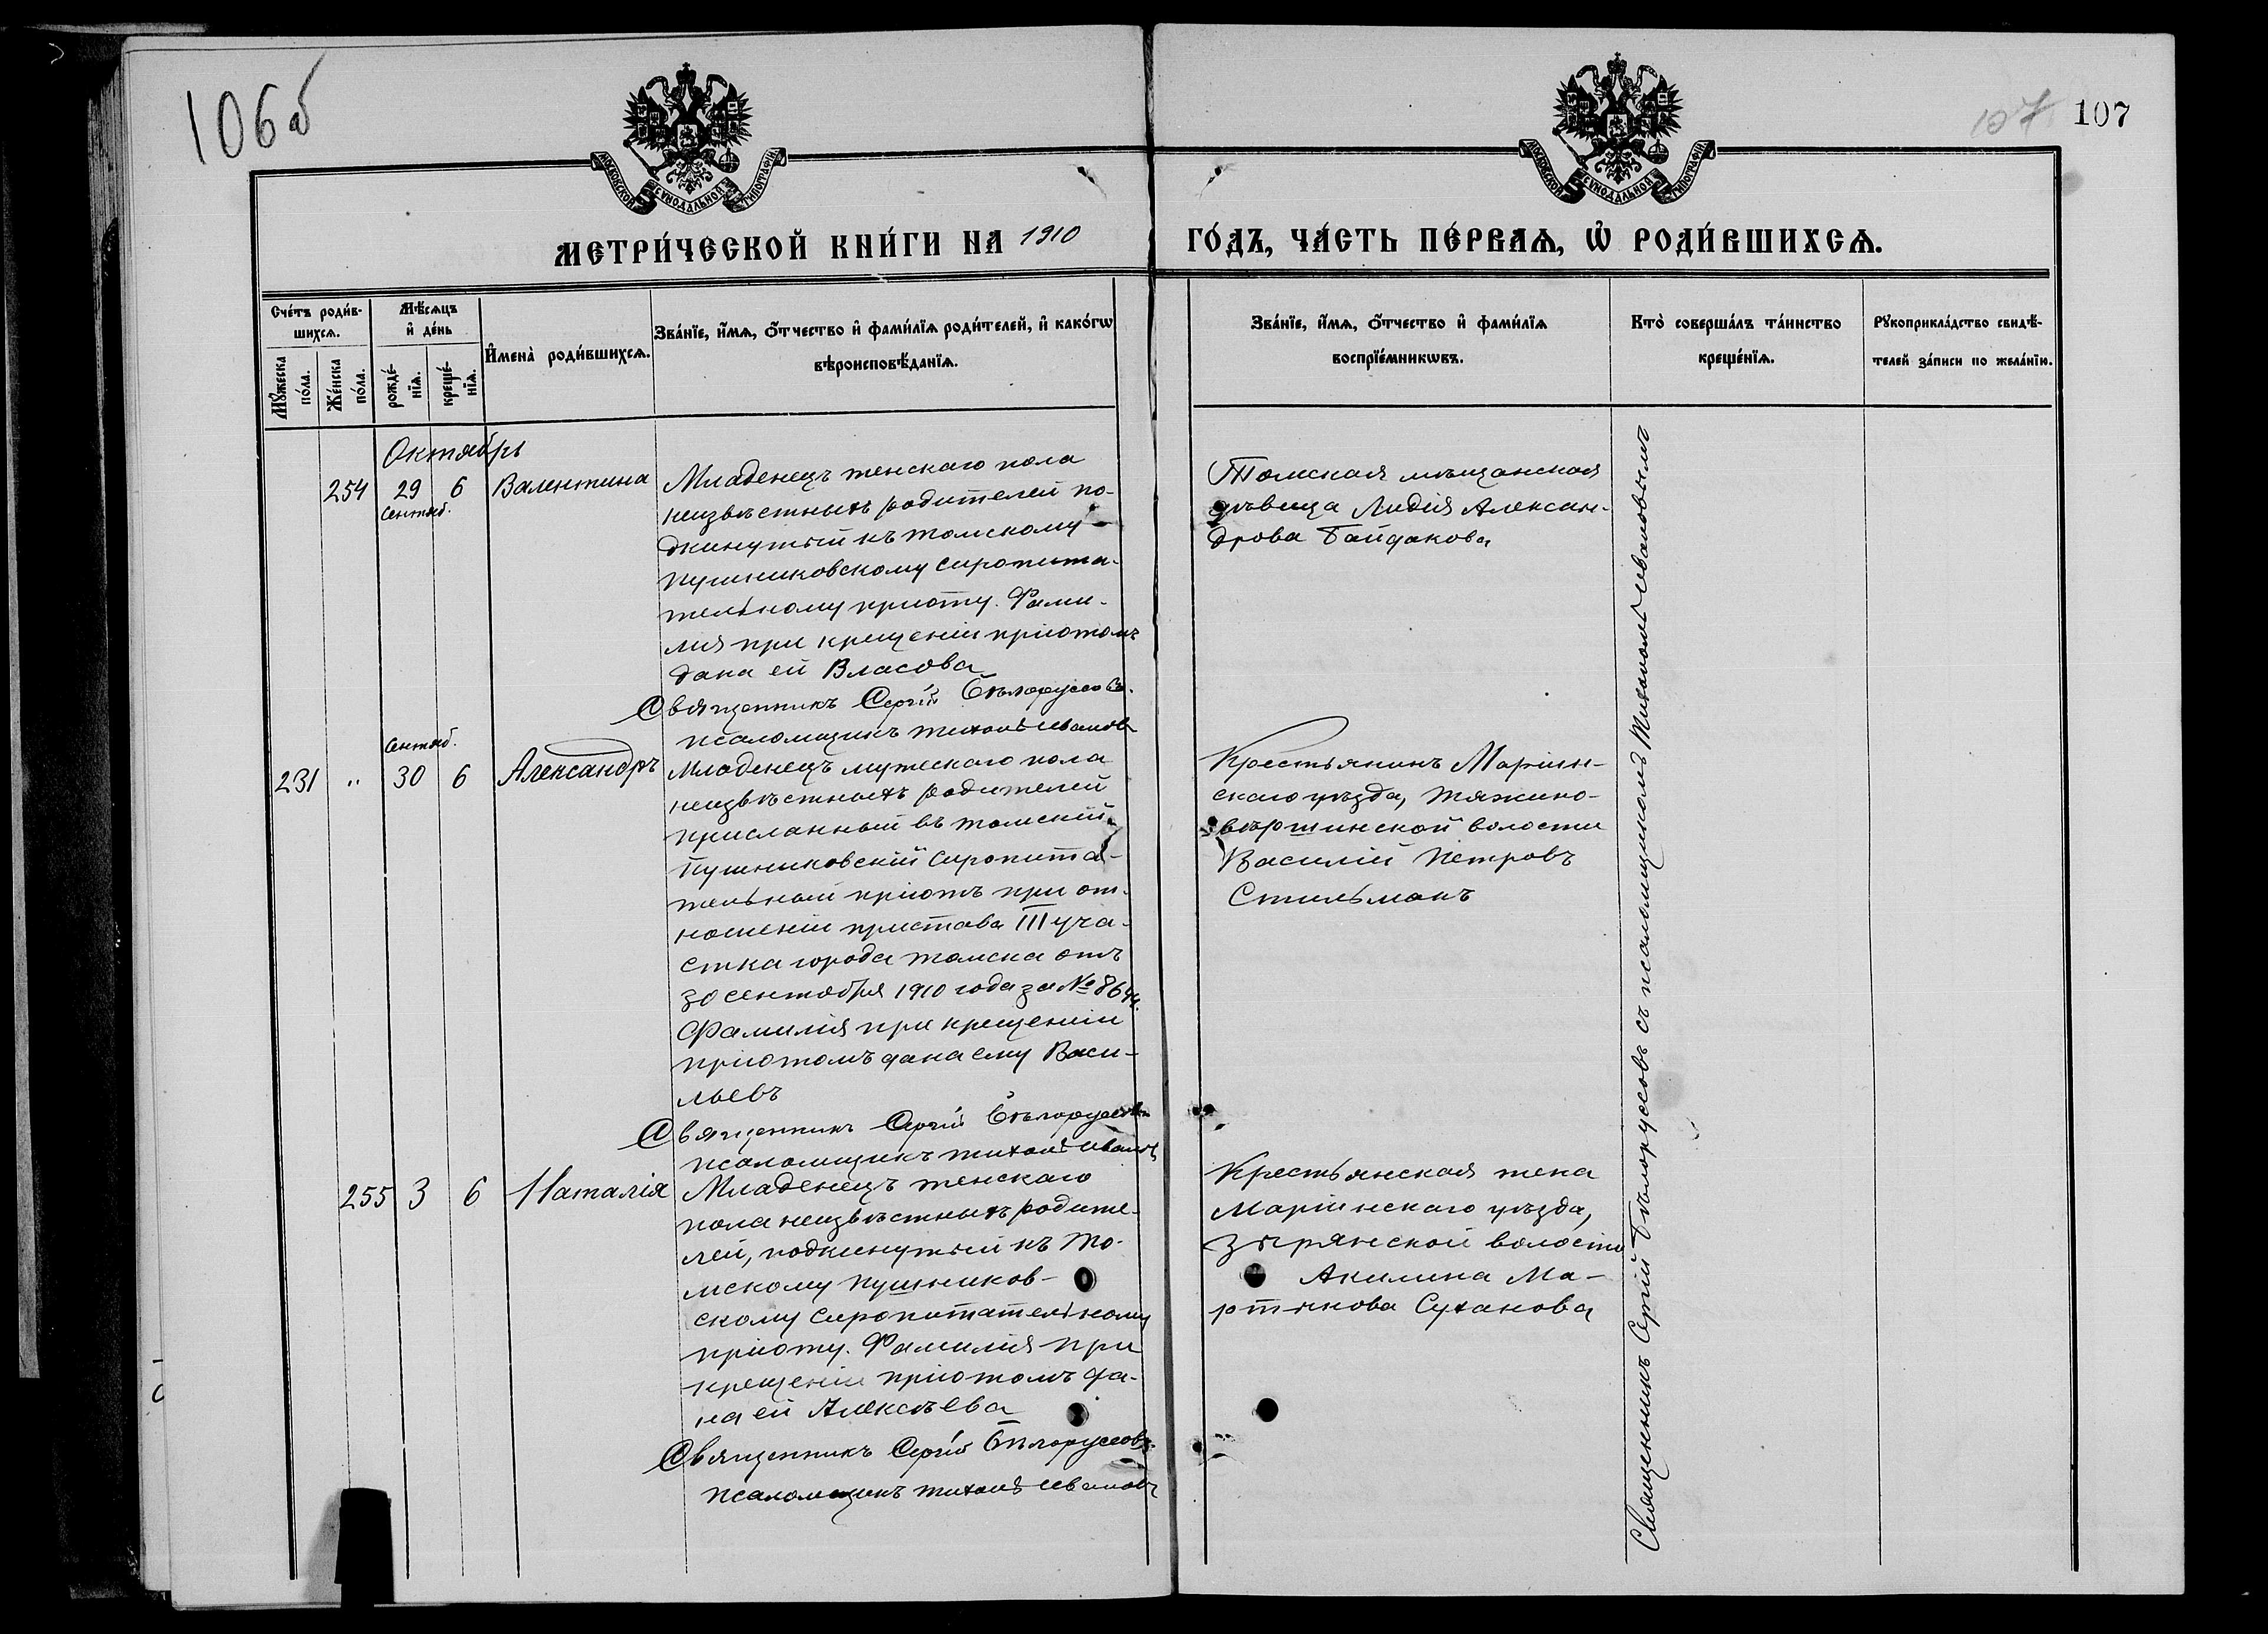 106 об
107 107
МОСКОВСКОЙ СУНОДАЛЬНОЙ ТИПОГРАФІИ
МОСКОВСКОЙ СУНОДАЛЬНОЙ ТИПОГРАФІИ
МЕТРИ́ЧЕСКОЙ КНИ́ГИ НА 1910 ГО́ДЪ, ЧА́СТЬ ПЕ́РВАѦ, Ѡ҆ РОДИ́ВШИХСѦ.
Сче́тъ роди́в-
шихсѧ.
Мꙋ́жеска
по́ла.
Же́нска
по́ла.
Мѣ́сѧцъ
и҆ де́нь
рожде́-
нїѧ.
креще́-
нїѧ.
И҆мена̀ роди́вшихсѧ.
Зва́нїе, и҆́мѧ, ѻ҆́тчество и҆ фами́лїѧ роди́телей, и҆ како́гѡ
вѣроисповѣ́данїѧ.
Зва́нїе, и҆́мѧ, ѻ҆́тчество и҆ фами́лїѧ
воспрїе́мникѡвъ.
Кто̀ соверша́лъ та́инство
креще́нїѧ.
Рꙋкоприкла́дство свидѣ́-
телей за́писи по жела́нїю.
Октябрь
254 29 6 Валентина
Сентяб.
Младенецъ женскаго пола
неизвѣстныхъ родителей по-
дкинутый къ томскому
пушниковскому сиропита-
тельному приоту. Фами-
лия при крещеніи пріотомъ
дана ей Власова
Священникъ Сергій Бѣлоруссовъ.
псаломщикъ Тихонъ Ивановъ
Томская мѣщанская
дѣвица Лидія Алексан-
дрова Байдакова
Сентяб.
231 " 30 6 Александръ
Младенецъ мужескаго пола
неизвѣстныхъ родителей
присланный въ томскій
Пушниковскій сиропита-
тельный пріотъ при от-
ношеніи пристава III уча-
стка города томска отъ
30 сентября 1910 года за № 8644.
Фамилія при крещеніи
пріотомъ дана ему Васи-
льевъ
Священникъ Сергій Бѣлоруссовъ
псаломщикъ Тихонъ Ивановъ
Крестьянинъ Маріин-
скаго уѣзда, тяжино-
вѣршинской волости
Василій Петровъ
Стильманъ
255 3 6 Наталія
Младенецъ женскаго
пола неизвѣстныхъ родите-
лей, подкинутый къ То-
мскому пушников-
скому сиропитательному
приоту. Фамилія при
крещеніи пріотомъ да-
на ей Алексѣева
Священникъ Сергій Бѣлоруссовъ.
псаломщикъ Тихонъ Ивановъ
Крестьянская жена
Маріинскаго уѣзда,
зырянской волости
Акилина Ма-
ртынова Суханова
Священникъ Сергій Бѣлоруссовъ съ псаломщикомъ Тихономъ Ивановымъ